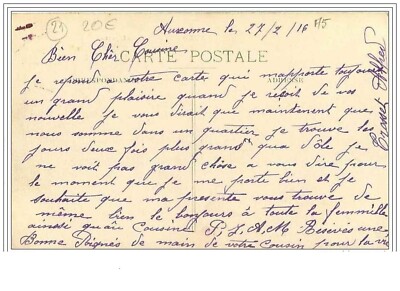 23 20€
Auxonne le, 27/2/16
F/5
Bien Cher Cousine
CARTE POSTALE
CORRESPONDANCE
ADRESSE
Je repond a votre carte qui m'apporte toujours
un grand plaisire quand je reçoit de vos
nouvelle Je vous dirait que maintenent que
nous somme dans un quartier je trouve les
jours deux fois plus grand qu'a dôle je
ne voit pas grand chôse a vous dire pour
le moment que je me porte bien et je
souhaite que ma presente vous trouve de
même bien le bonjours à toute la fammille
ainssi qu'au Cousin P.S.A.M Resévés une
Bonne Poignés de main de votre cousin pour la vie
Alfred